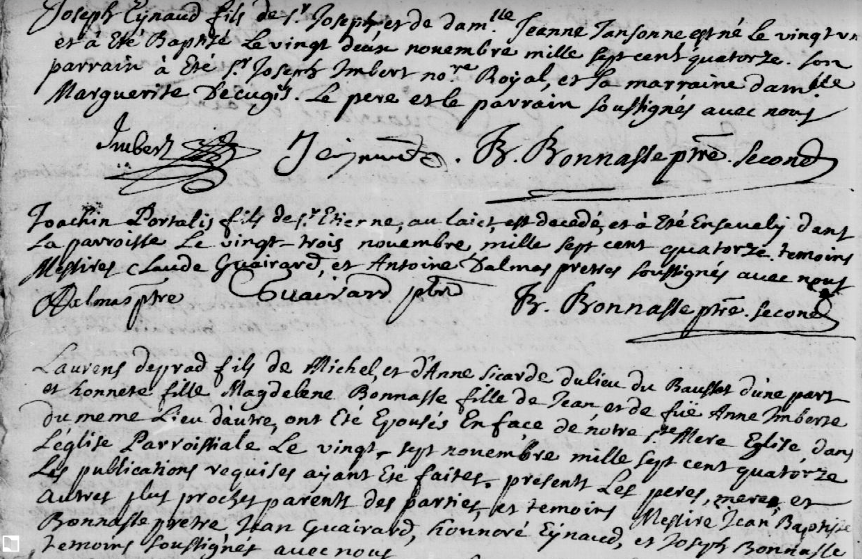 Joseph Eynaud fils de Sr Joseph, et de damlle Jeanne Jansonne est né le vingt un
et à Eté Baptisé Le vingt deux novembre mille sept cent quatorze. son
parrain à Eté Sr Joseph Imbert nore Royal, et sa marraine damlle
Marguerite Decugis. Le pere et le parrain soussignes avec nous
Imbert J eynaud. B. Bonnasse ptre. second
Joachin Portalis fils de Sr Etienne, au laict, est decedé, et à Eté Ensevely dans
La parroisse Le vingt-trois novembre mille sept cent quatorze temoins
Messires Claude Guairard, et Antoine Dalmas pretres soussignés avec nous
Dalmas ptre Guairard ptre B. Bonnasse ptre. second
Laurens desprad fils de Michel, et d'Anne Sicarde du lieu du Bausset d'une part
et honnete fille Magdelene Bonnasse fille de Jean, et de füe Anne Imberte
du meme Lieu d'autre, ont Eté Epousés En face de nôtre Ste Mere Eglise, dans
L'église Parroissiale Le vingt-sept novembre mille sept cent quatorze
Les publications requises aÿant Eté faites, presents Les peres, meres, et
autres plus proches parents des parties, et temoins Messire Jean Baptiste
Bonnasse pretre, Jean Guairard, honnoré Eÿnaud, et Joseph Bonnasse
temoins soussignés avec nous